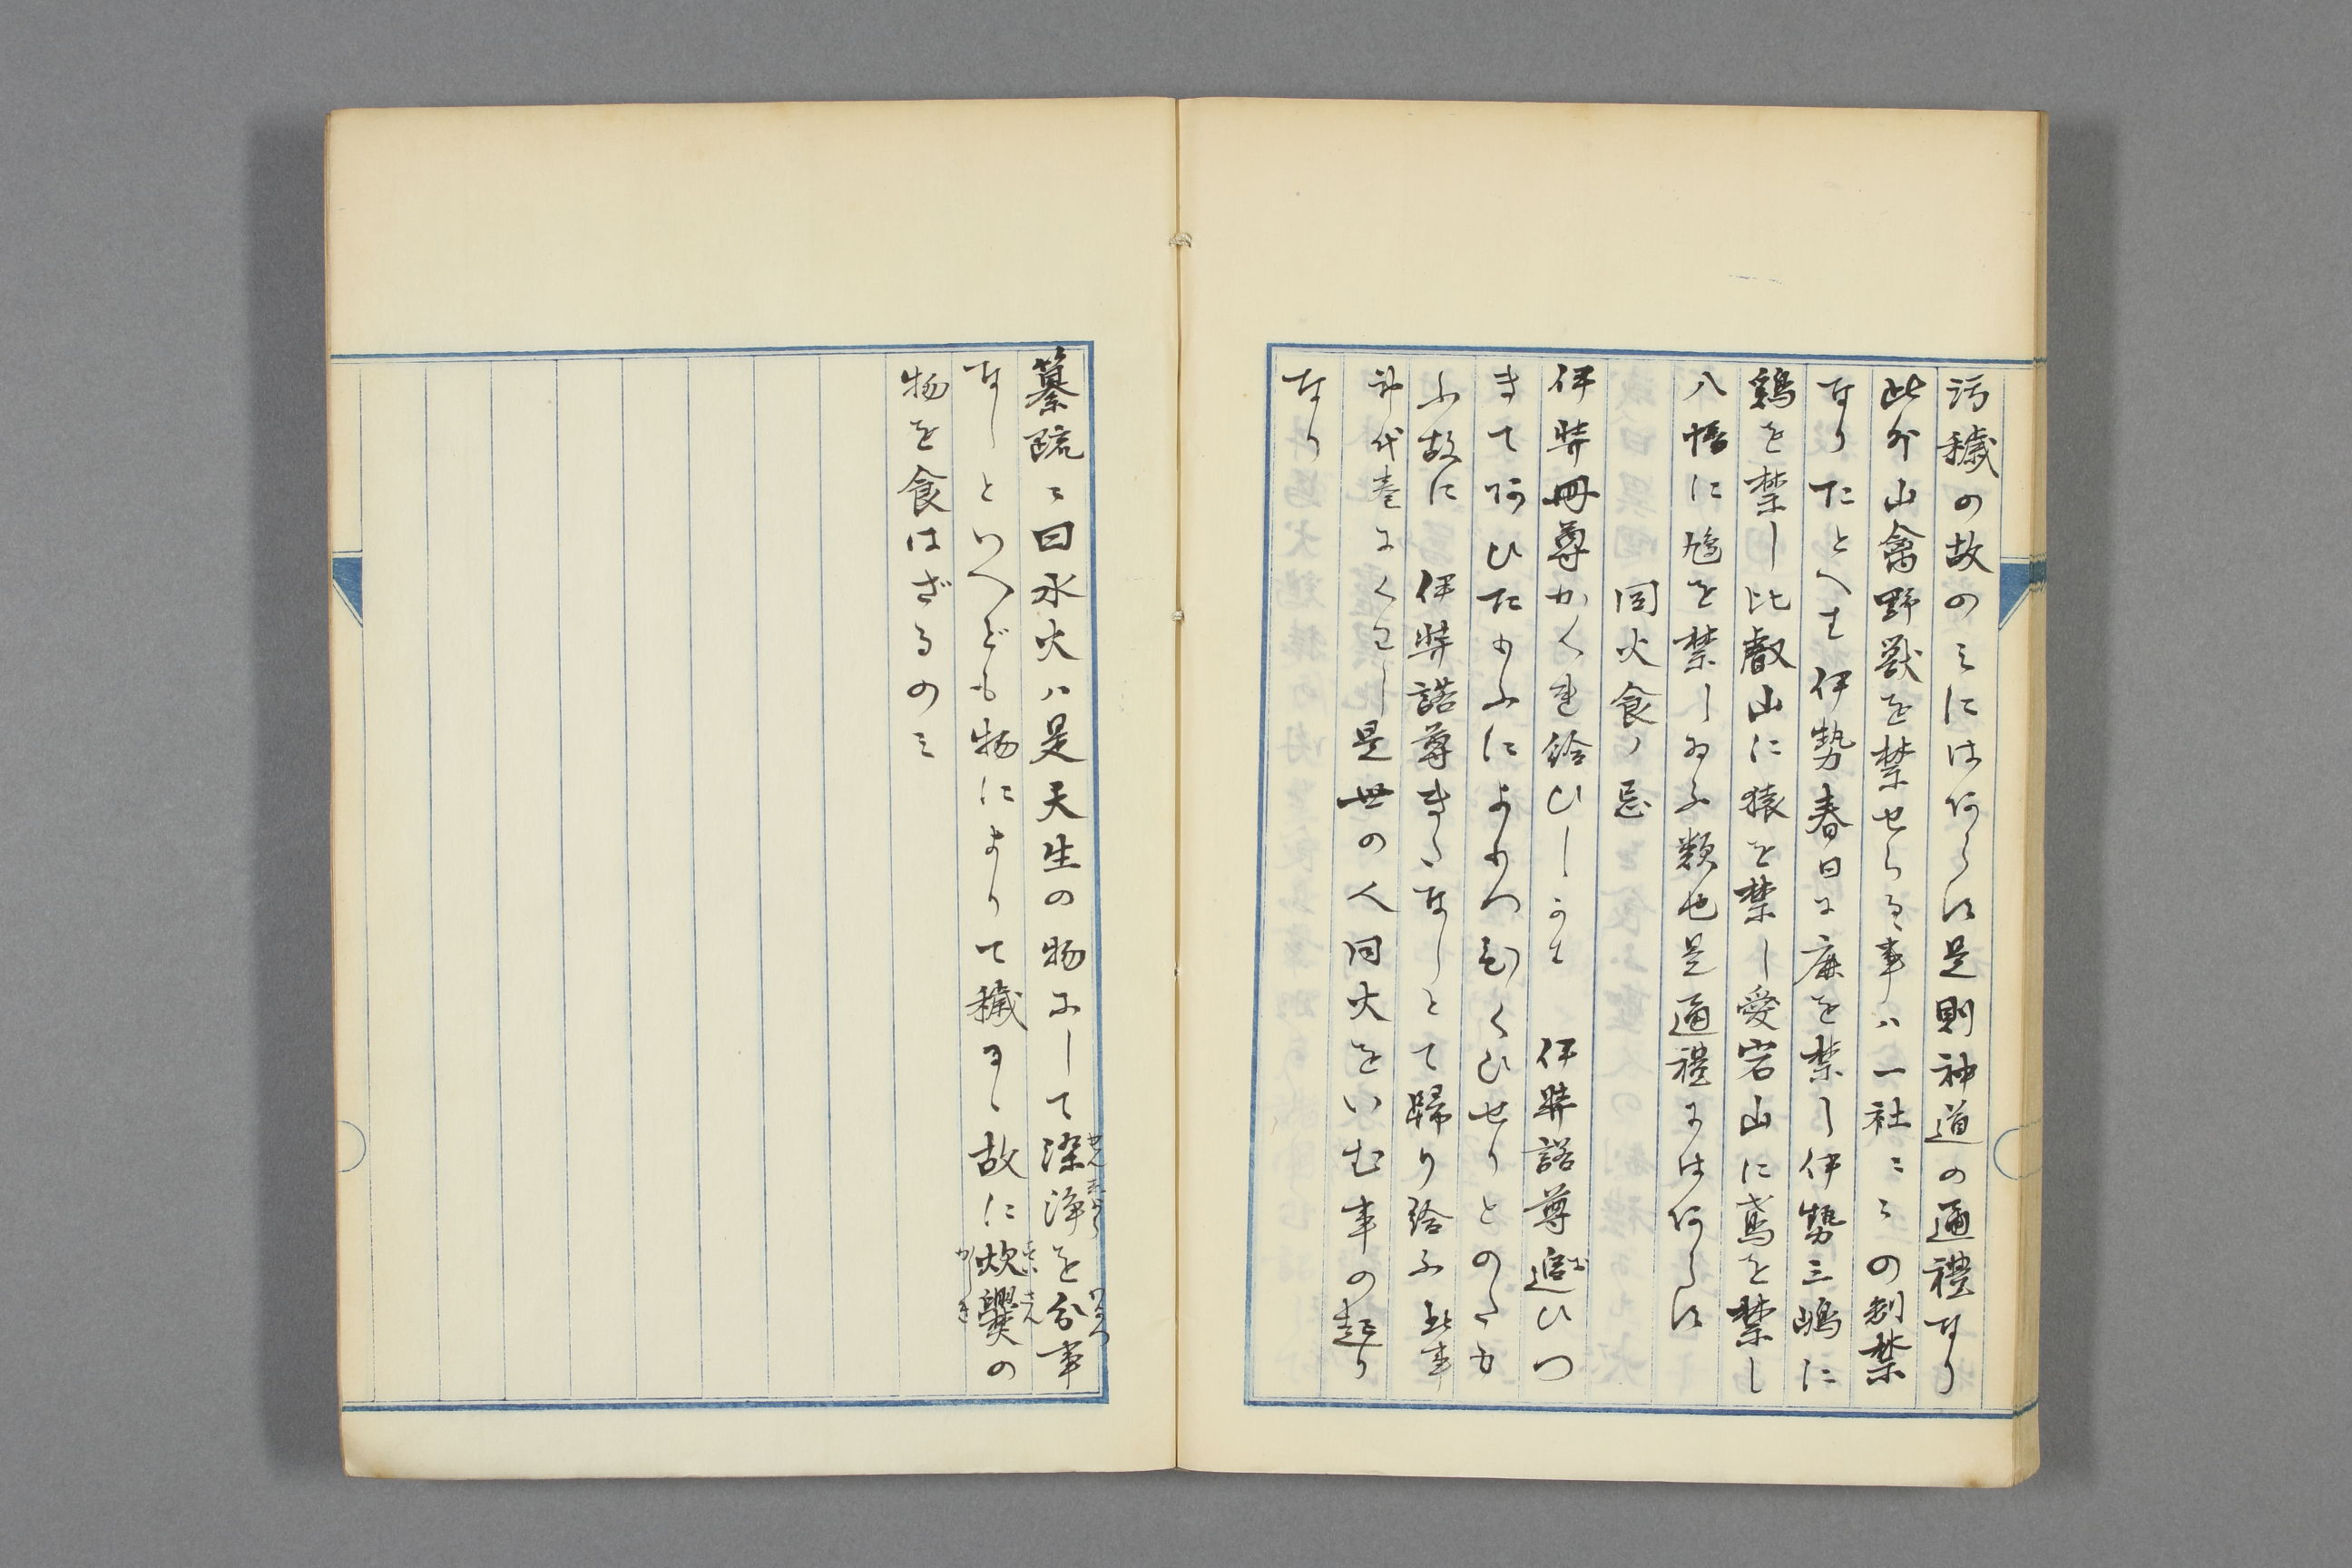 汚穢の故のミにはあらす是則神道の通禮なり
此外山禽野獣を禁せらるゝ事ハ一社ニミの制禁
なりたとへは伊勢春日に鹿を禁し伊勢三嶋に
鶏を禁し比叡山に猿を禁し愛宕山に鳶を禁し
八幡に鳩を禁し給ふ類也是通禮にはあらす
同火食ノ忌
伊弉冊尊かくれ給ひしかは 伊弉諾尊追ひつ
きてあひたまふによもつへくひせりとのたま
ふ故に 伊弉諾尊きたなしとて歸り給ふ此事
神代巻にくわし是世の人同火をいむ事の起り
なり
纂疏ニ曰水火ハ是天生の物にして染浄を分事
なしといへども物によりて穢るゝ故に炊爨の
物を食はざるのミ